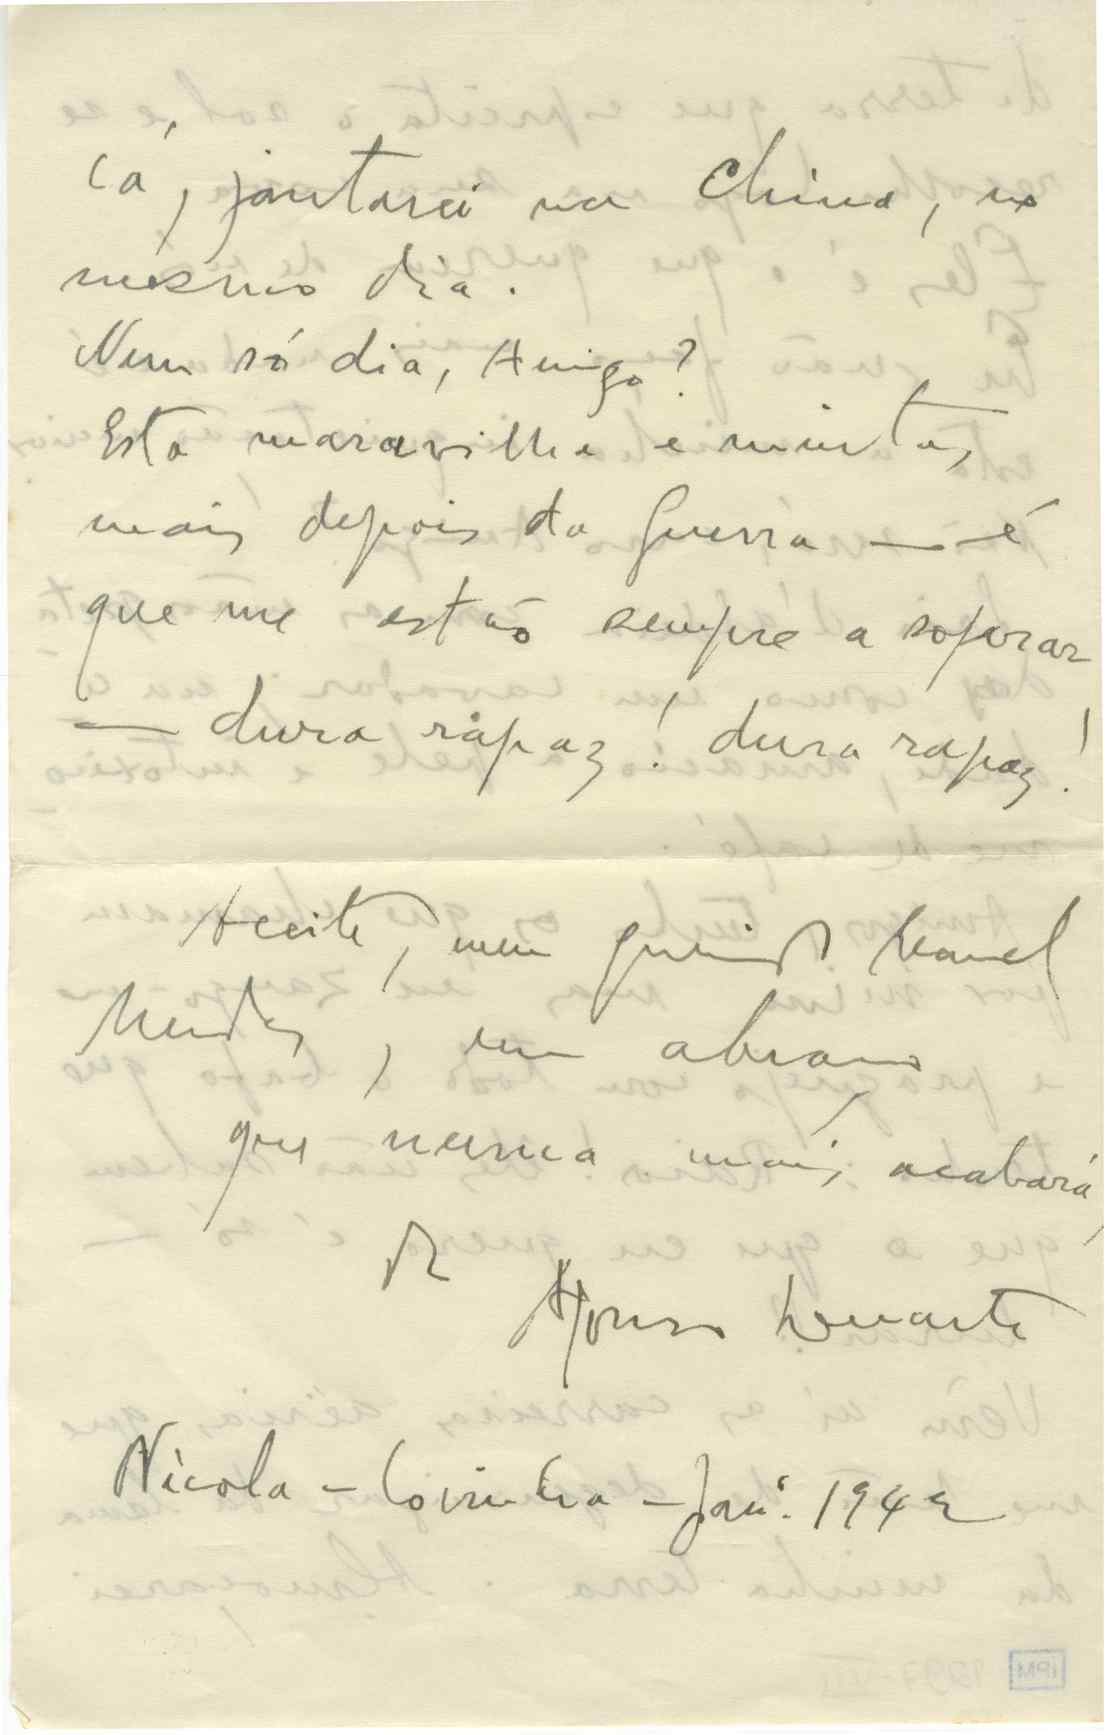 cá, jantarei na China, no
mesmo dia.
Num só dia, Amigo?
Esta maravilha e muitas
mais depois da Guerra — é
que me estão sempre a soprar
— dura rapaz! dura rapaz!
Aceite, meu querido Manuel
Mendes, um abraço
que nunca mais acabará,
do
Afonso Duarte
Nicola – Coimbra – Jan.º 1942